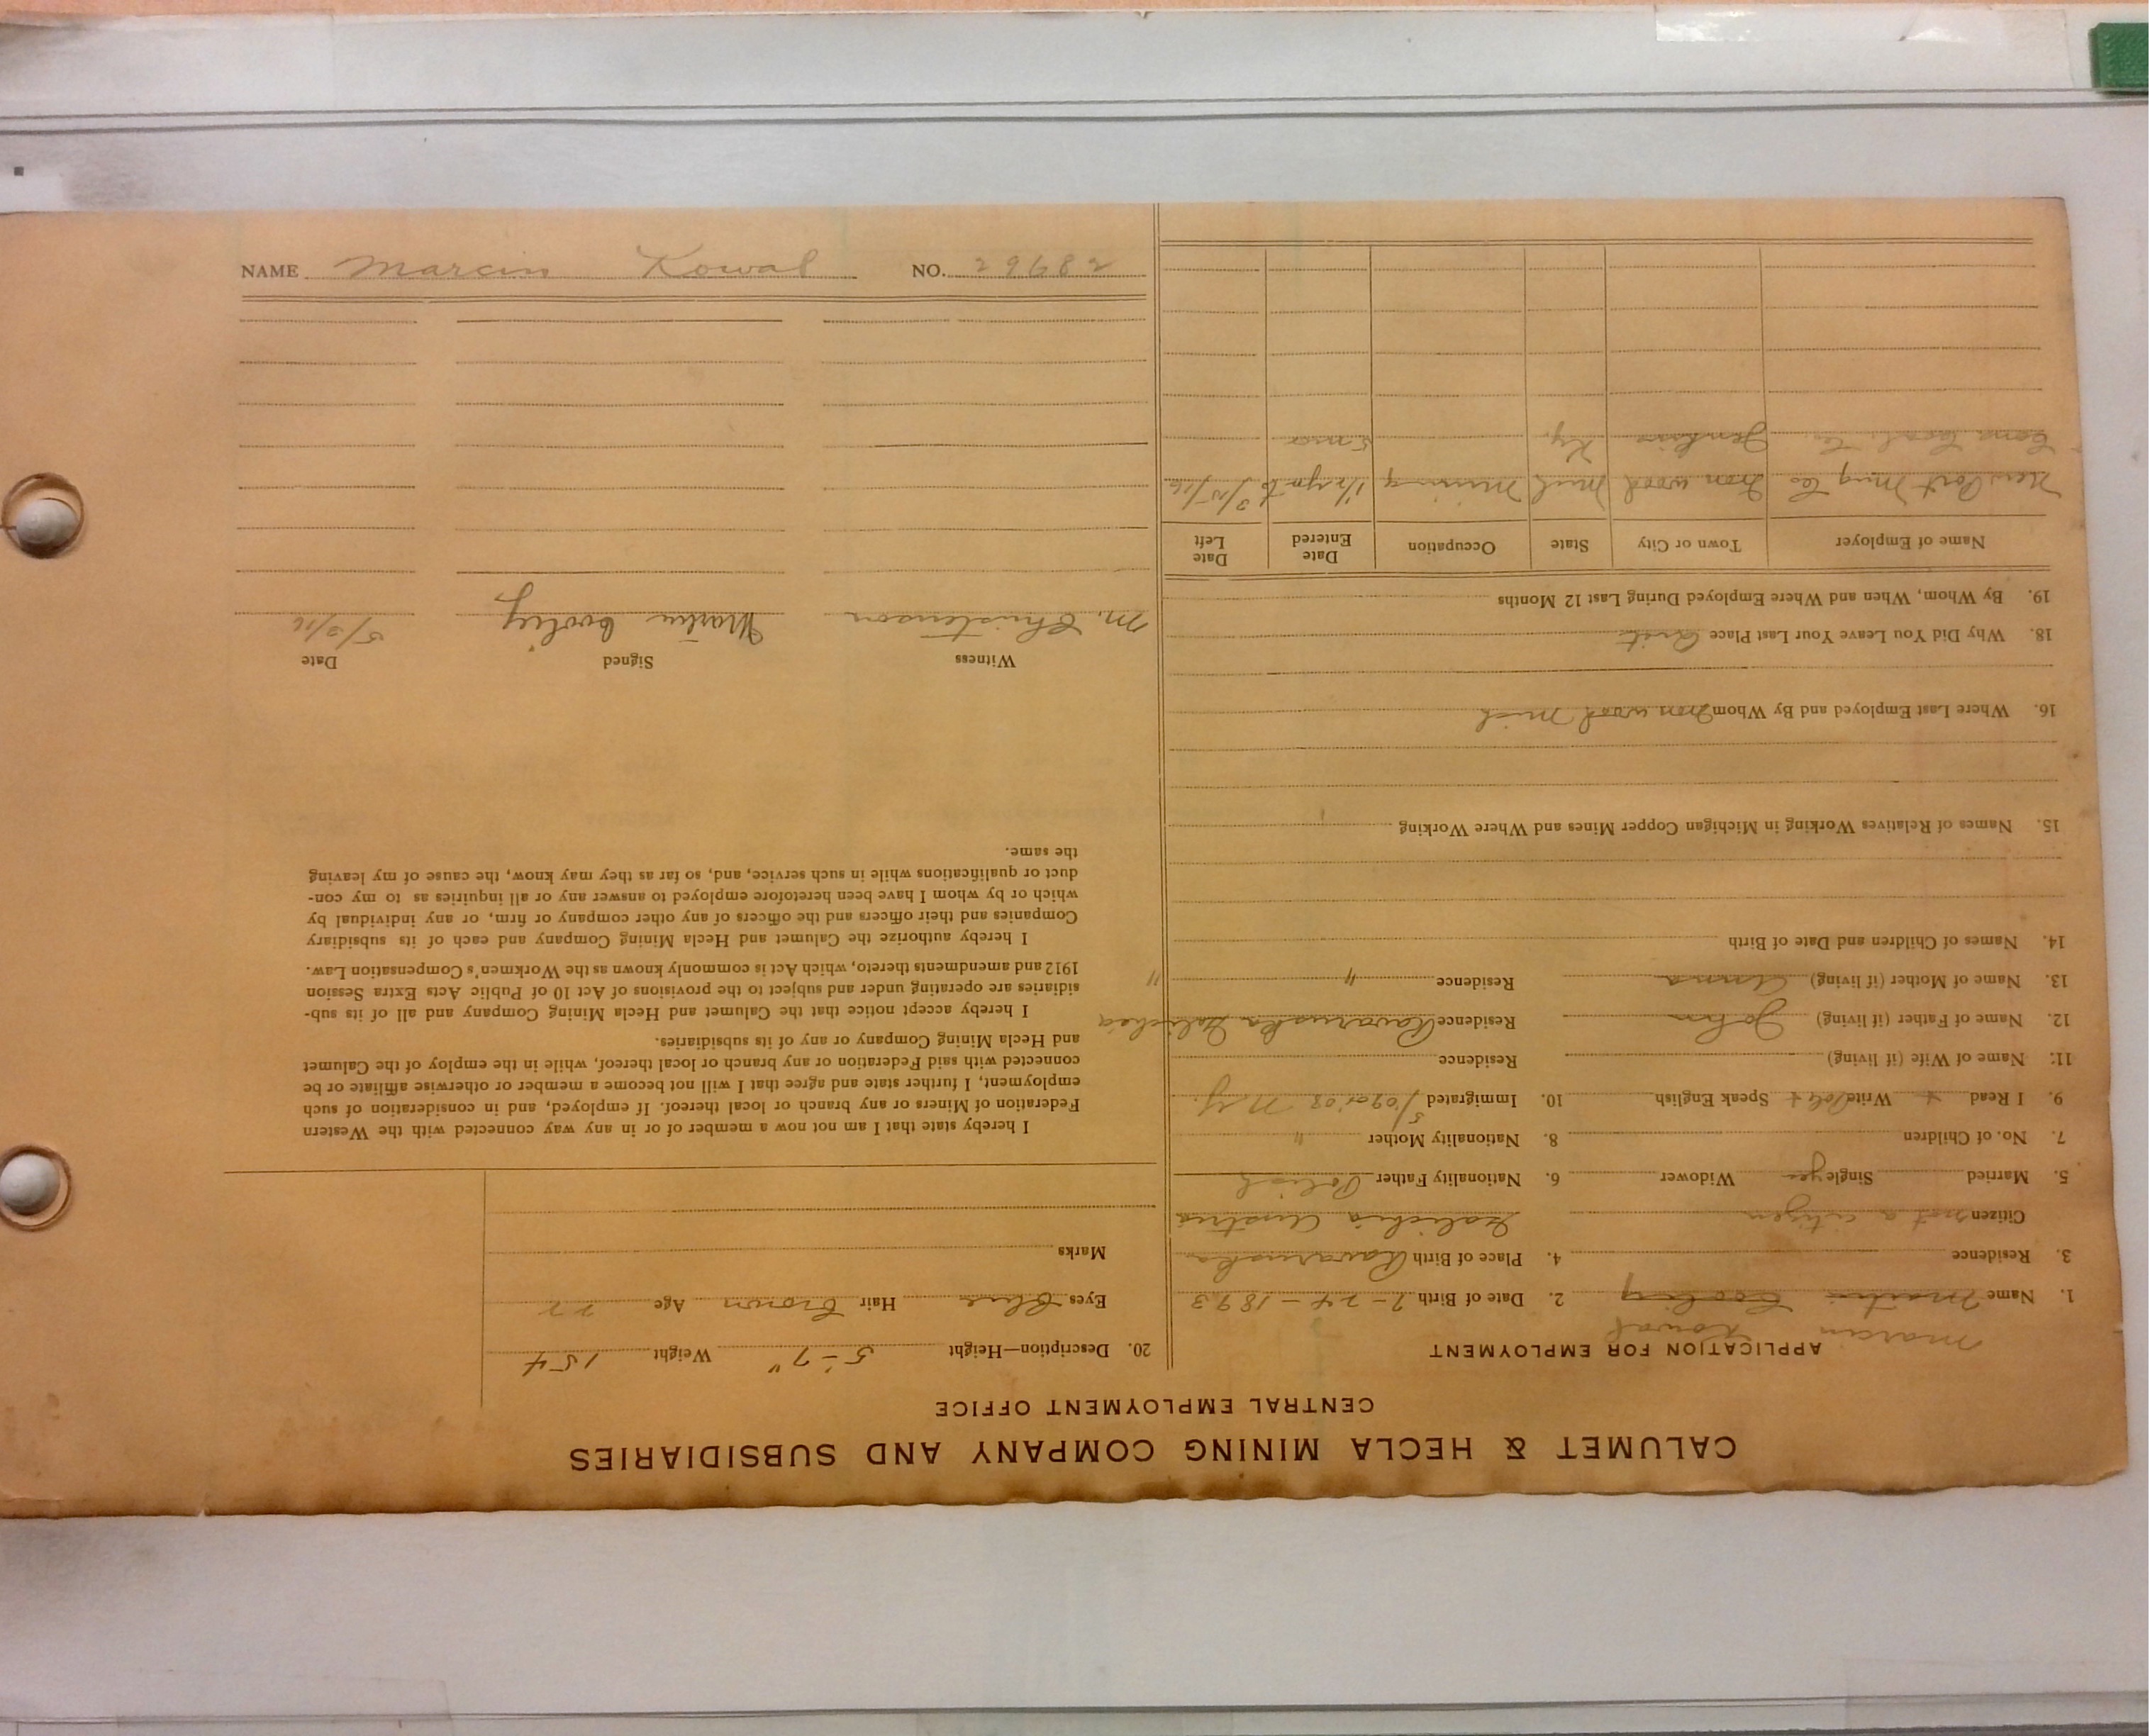 CALUMET & HECLA MINING COMPANY AND SUBSIDIARIES
CENTRAL EMPLOYMENT OFFICE
APPLICATION FOR EMPLOYMENT
Marcin Kowal
1. Name Martin Cooley 2. Date of Birth 7-24-1893
3. Residence 4. Place of Birth
Citizen not a citizen Galichia Austria
5. Married Single yes Widower 6. Nationality Father Polish
7. No. of Children 8. Nationality Mother "
9. I Read + Write + Speak English 10. Immigrated N.Y.
11. Name of Wife (if living) Residence
12. Name of Father (if living) John Residence Galichia
13. Name of Mother (if living) Anna Residence " "
14. Names of Children and Date of Birth
15. Names of Relatives Working in Michigan Copper Mines and Where Working
16. Where Last Employed and By Whom Iron wood Mich
18. Why Did You Leave Your Last Place Quit
19. By Whom, When and Where Employed During Last 12 Months
Name of Employer Town or City State Occupation Date Entered Date Left
New Port Ming Co Iron wood Mich Mining 3/15/16
Coal Co. Jenkins Ky. 5 mos
20. Description—Height 5-7" Weight 154
Eyes Blue Hair Brown Age 22
Marks
I hereby state that I am not now a member of or in any way connected with the Western
Federation of Miners or any branch or local thereof. If employed, and in consideration of such
employment, I further state and agree that I will not become a member or otherwise affiliate or be
connected with said Federation or any branch or local thereof, while in the employ of the Calumet
and Hecla Mining Company or any of its subsidiaries.
I hereby accept notice that the Calumet and Hecla Mining Company and all of its sub-
sidiaries are operating under and subject to the provisions of Act 10 of Public Acts Extra Session
1912 and amendments thereto, which Act is commonly known as the Workmen's Compensation Law.
I hereby authorize the Calumet and Hecla Mining Company and each of its subsidiary
Companies and their officers and the officers of any other company or firm, or any individual by
which or by whom I have been heretofore employed to answer any or all inquiries as to my con-
duct or qualifications while in such service, and, so far as they may know, the cause of my leaving
the same.
Witness Signed Date
M. Christenson Martin Cooley 5/3/16
NAME Marcin Kowal NO. 29682